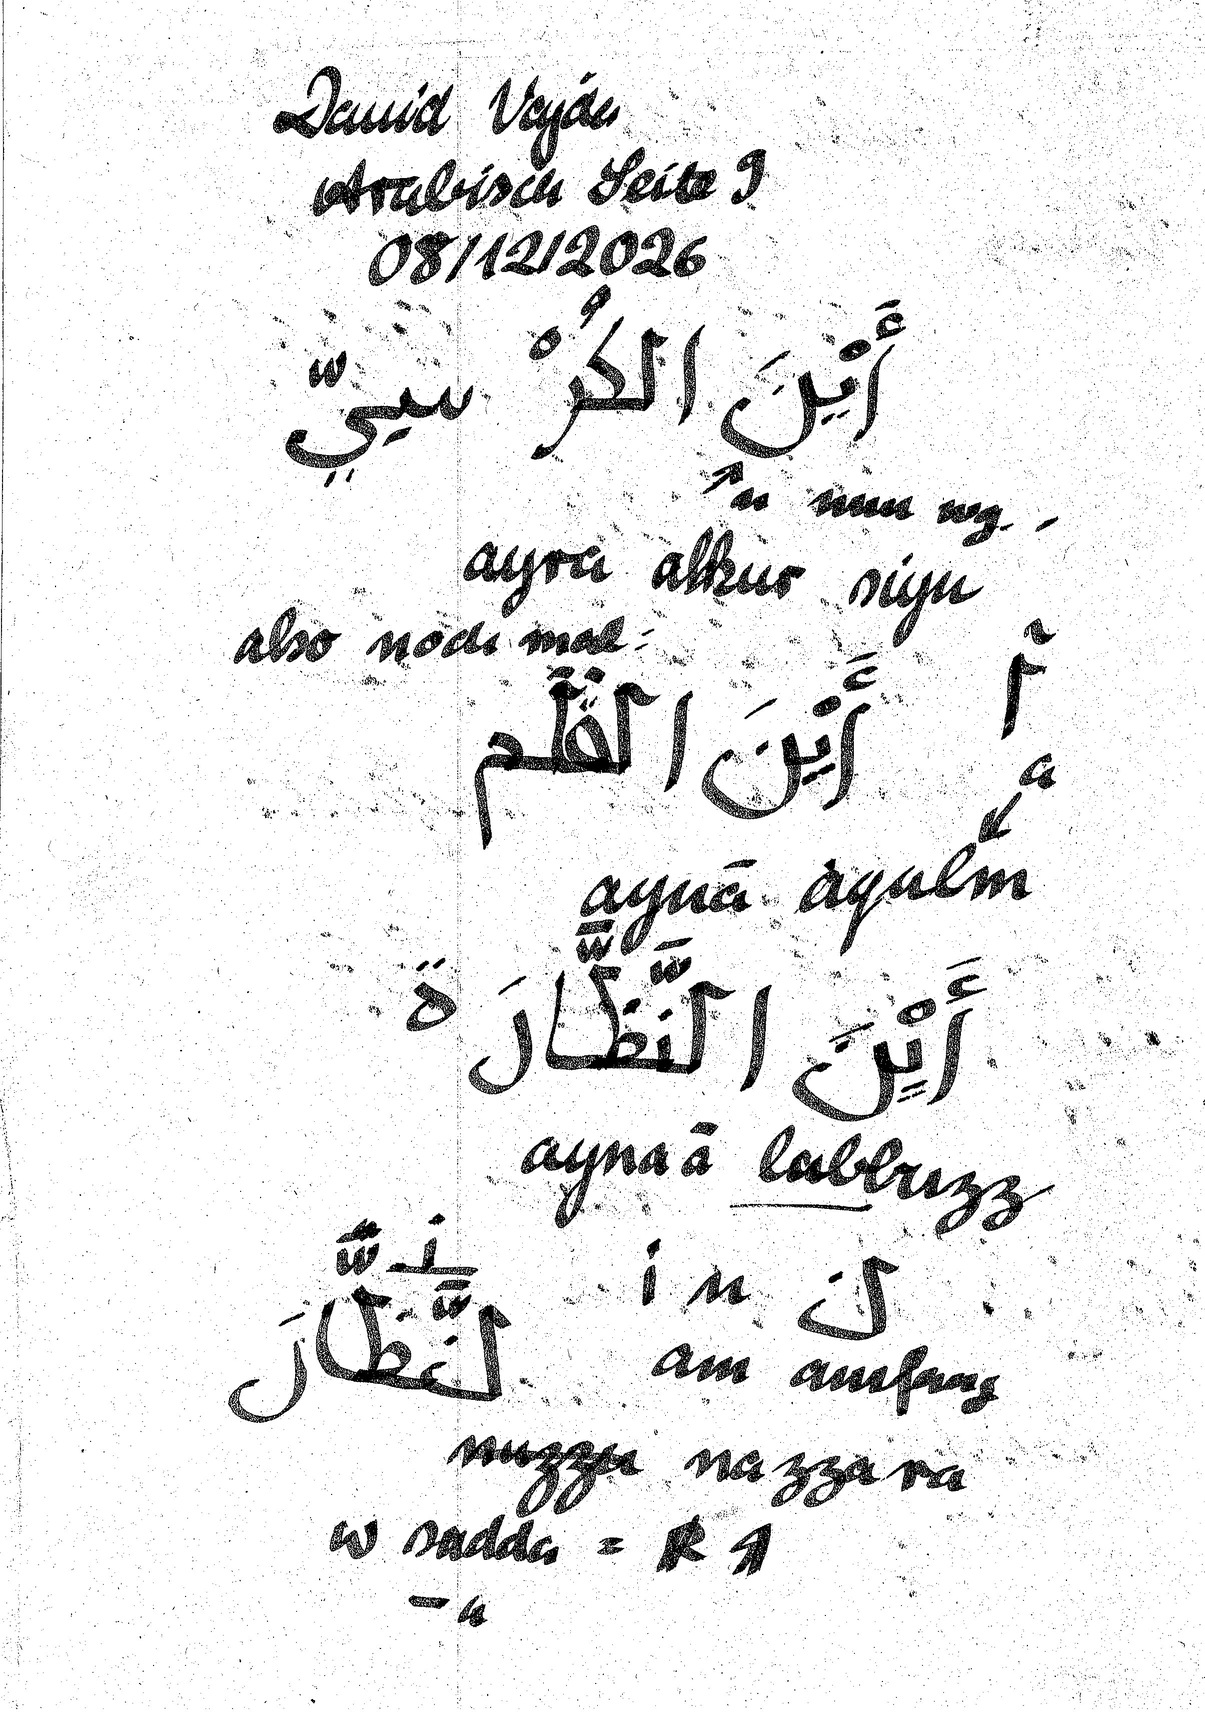 David Vajda
Arabisch Seite 9
08/12/2026
أَيْنَ الكُرْ سيِيّ
n nun wg.
ayra alkur siyu
also noch mal:
أَيْنَ القَلَم آ
a
aynā àqulm
أَيْنَ النَّظَّارَ ة
aynaā labbuzz
i n لن
لنَّظَّارَ am anfang
nuzzu nazzara
w sadda = R
- a